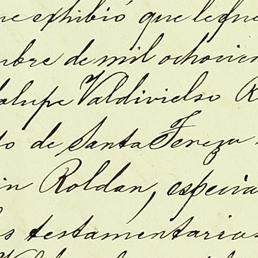 me exhibió que le fue
mbre de mil ochocien
dalupe Valdivielso R
to de Santa Tereza
in Roldan, especia
s testamentarios